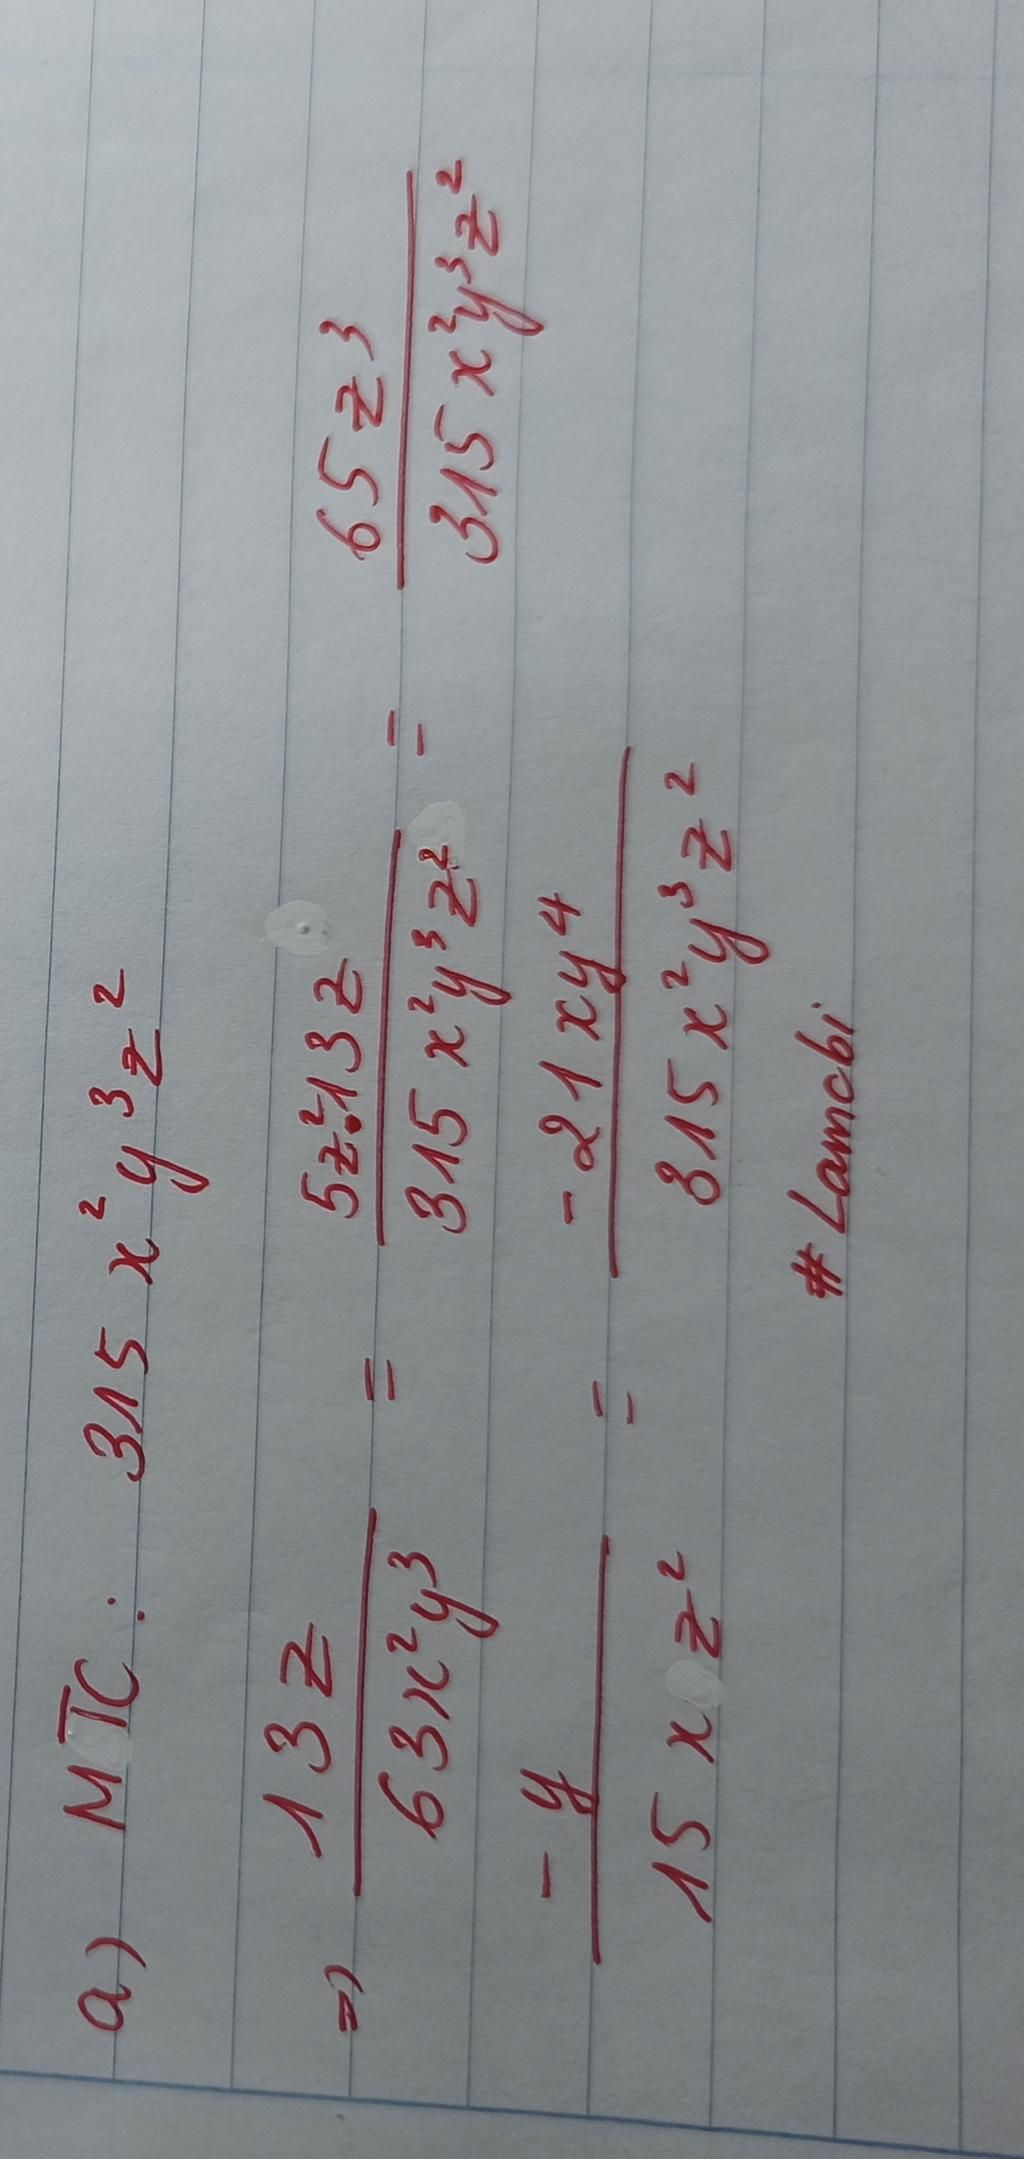 a) MTC: 315 x²y³z²
⇒ 13z / 63x²y³ = 5z².13z / 315x²y³z² = 65z³ / 315x²y³z²
-y / 15xz² = -21xy⁴ / 315x²y³z²
# Lamcbi